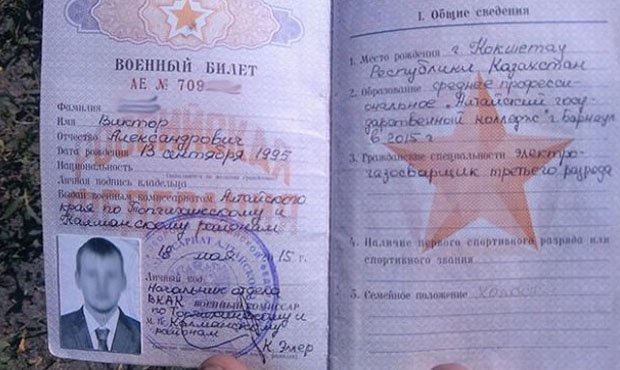 ВОЕННЫЙ БИЛЕТ
АЕ № 709
Фамилия
Имя Виктор
Отчество Александрович
Дата рождения 13 сентября 1995
Национальность
Личная подпись владельца
Выдан военным комиссариатом Алтайского
края по Топчихинскому и
Калманскому районам
мая 2015 г.
Личный код
Начальник отдела
ВКАК ВОЕННЫЙ КОМИССАР
по Топчихинскому и
М.П. Калманскому
районам
I. Общие сведения
1. Место рождения г. Кокшетау
Республики Казахстан
2. Образование среднее професси
ональное "Алтайский госу-
дарственный колледж" г. Барнаул
в 2015 г
3. Гражданские специальности электро-
газосварщик третьего разряда
4. Наличие первого спортивного разряда или
спортивного звания
5. Семейное положение холост